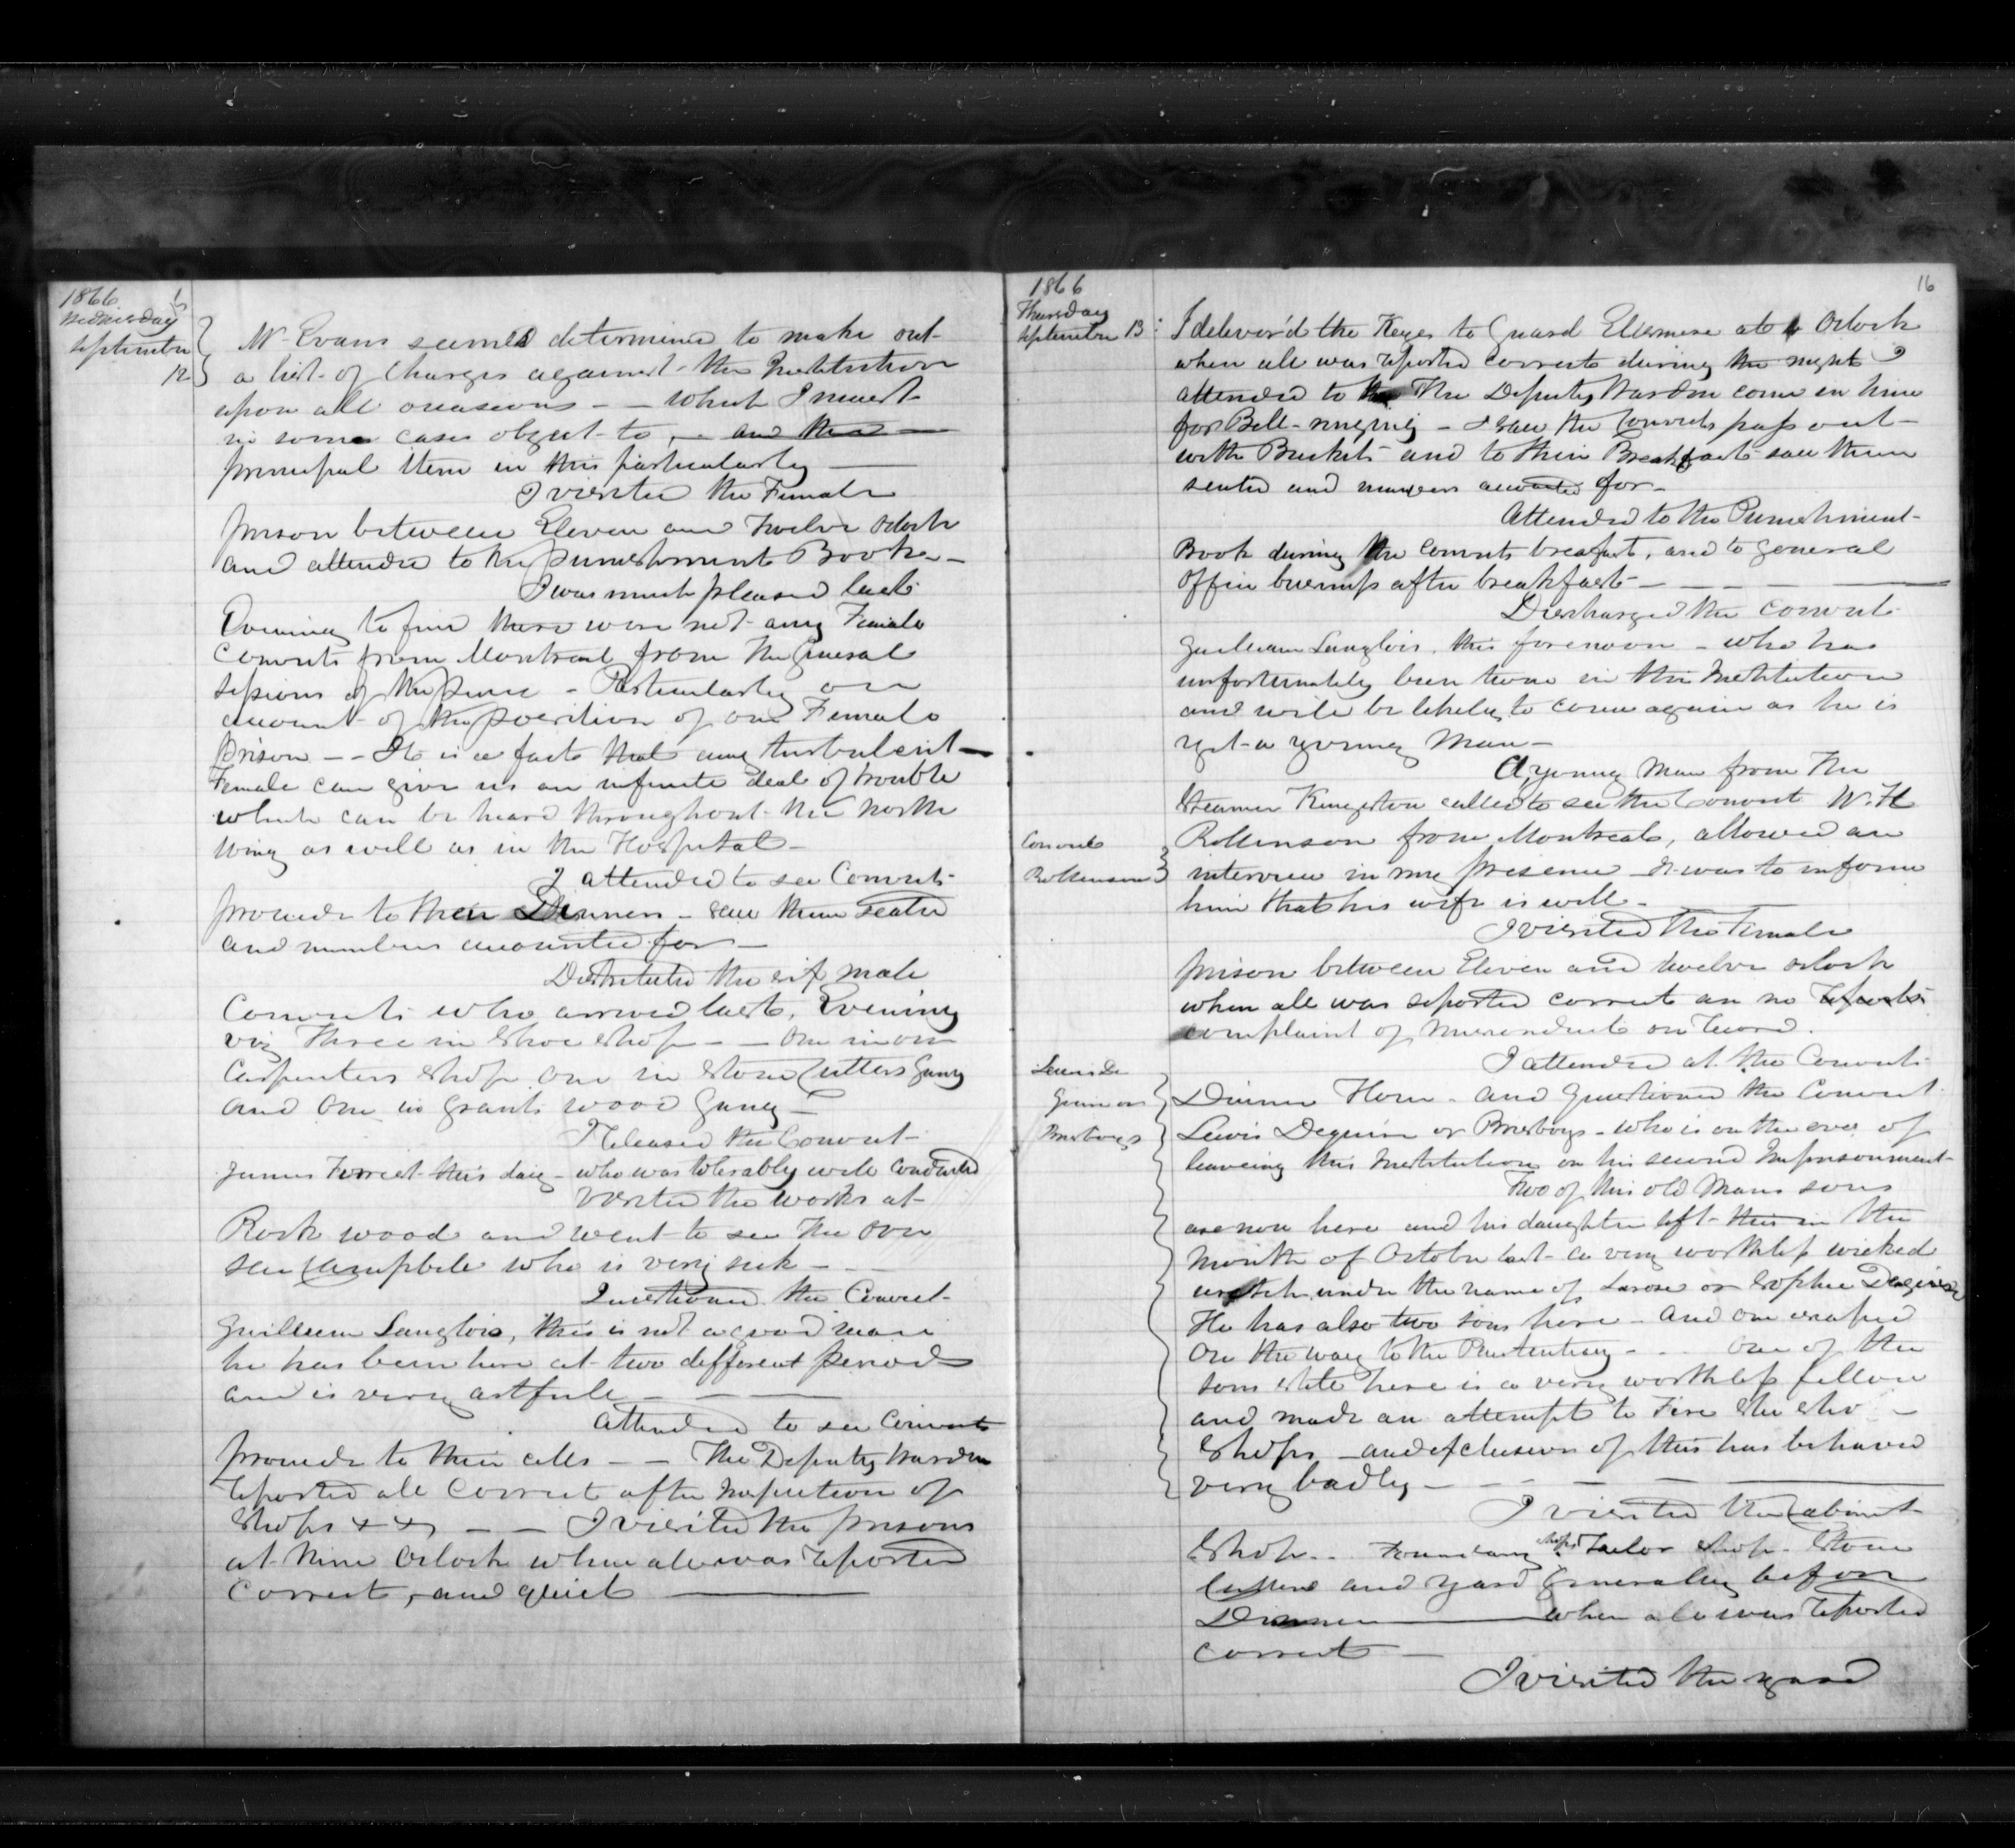 1866
Wednesday
September
12
Mr Evans seems determined to make out
a list of Charges against the Institution
upon all occasions - - which I must
in some cases object to, - and the
principal item in this particularly
I visited the Female
prison between Eleven and Twelve oclock
and attended to the punishment Book -
I was much pleased last
Evening to find there were not any Female
Convicts from Montreal from the General
Sessions of the peace - Particularly on
account of the position of our Female
prison - - It is a fact that any turbulent
Female can give us an infinite deal of trouble
which can be heard throughout the North
Wing as well as in the Hospital -
I attended to see Convicts
proceed to their Dinners - saw them seated
and numbers accounted for -
Distributed the six male
Convicts who arrived last Evening
viz Three in Shoe Shop - - one in our
Carpenters Shop one in Stone Cutters Gang
and one in Grants wood Gang -
I released the Convict
James this day - who was tolerably well conducted
Visited the works at
Rockwood and went to see the over
seer Campbell who is very sick - -
Questioned the Convict
Guilleum Langlois, this is not a good man
he has been here at two different periods
and is very artfull - - -
Attended to see Convicts
proceed to their cells - - The Deputy Warden
reported all correct after inspection of
Shops - - I visited the prisons
at Nine Oclock when all was reported
Correct, and quiet
1866
Thursday
September 13
16
I deliver'd the Keyes to Guard Ellesmere at 6 Oclock
when all was reported correct during the night I
attended to the The Deputy Warden come in time
for Bell-ringing - I saw the Convicts pass out
with Buckets and to their Breakfast saw them
seated and numbers accounted for -
Attended to the Punishment
Book during the Convicts breafast, and to general
Office business after breakfast - - -
Discharged the Convict
Guilleum Langlois this forenoon - who has
unfortunately been twice in this Institution
and will be likely to come again as he is
yet a young Man -
A young Man from the
Steamer Kingston called to see the Convict W. H
Convict
Robinson from Montreal, allowed an
Robinson
interview in my presence it was to inform
him that his wife is well -
I visited the Female
prison between Eleven and twelve oclock
when all was reported correct an no reports
complaint of misconduct on board.
I attended at the Convicts
Lewis De
Dinner Hour - and Questioned the Convict
Guire or
Lewis Deguire or Brisbois - who is on the eve of
Brisbois
leaveing this Institution on his second Imprisonment
Two of this old Mans sons
are now here and his daughter left this in the
month of October last - a very worthless wicked
wretch under the name of Larose or Sophie Deguire
He has also two sons here - And one escaped
on the way to the Penitentiary - - - one of the
sons still here is a very worthless fellow
and made an attempt to Fire the Sho -
Shops - and exclusive of this has behaved
very badly - - - - -
I visited the Cabinet
Shop - Foundary shops Tailor Shop - Stone
Cutters and yard Generally before
Dinner when all was reported
correct -
I visited the yard